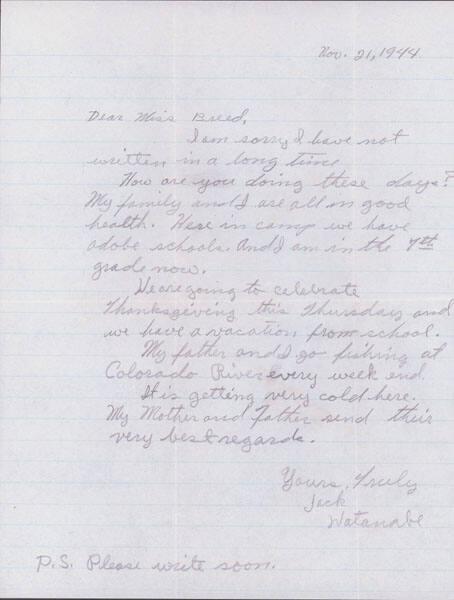 Nov. 21, 1944
Dear Miss Breed,
I am sorry I have not
written in a long time
How are you doing these days?
My family and I are all in good
health. Here in camp we have
adobe schools. And I am in the 7th
grade now.
We are going to celebrate
Thanksgiving this Thursday and
we have a vacation from school.
My father and I go fishing at
Colorado River every week end.
It is getting very cold here.
My Mother and Father send their
very best regards.
Yours, Truly
Jack
Watanabe
P.S. Please write soon.